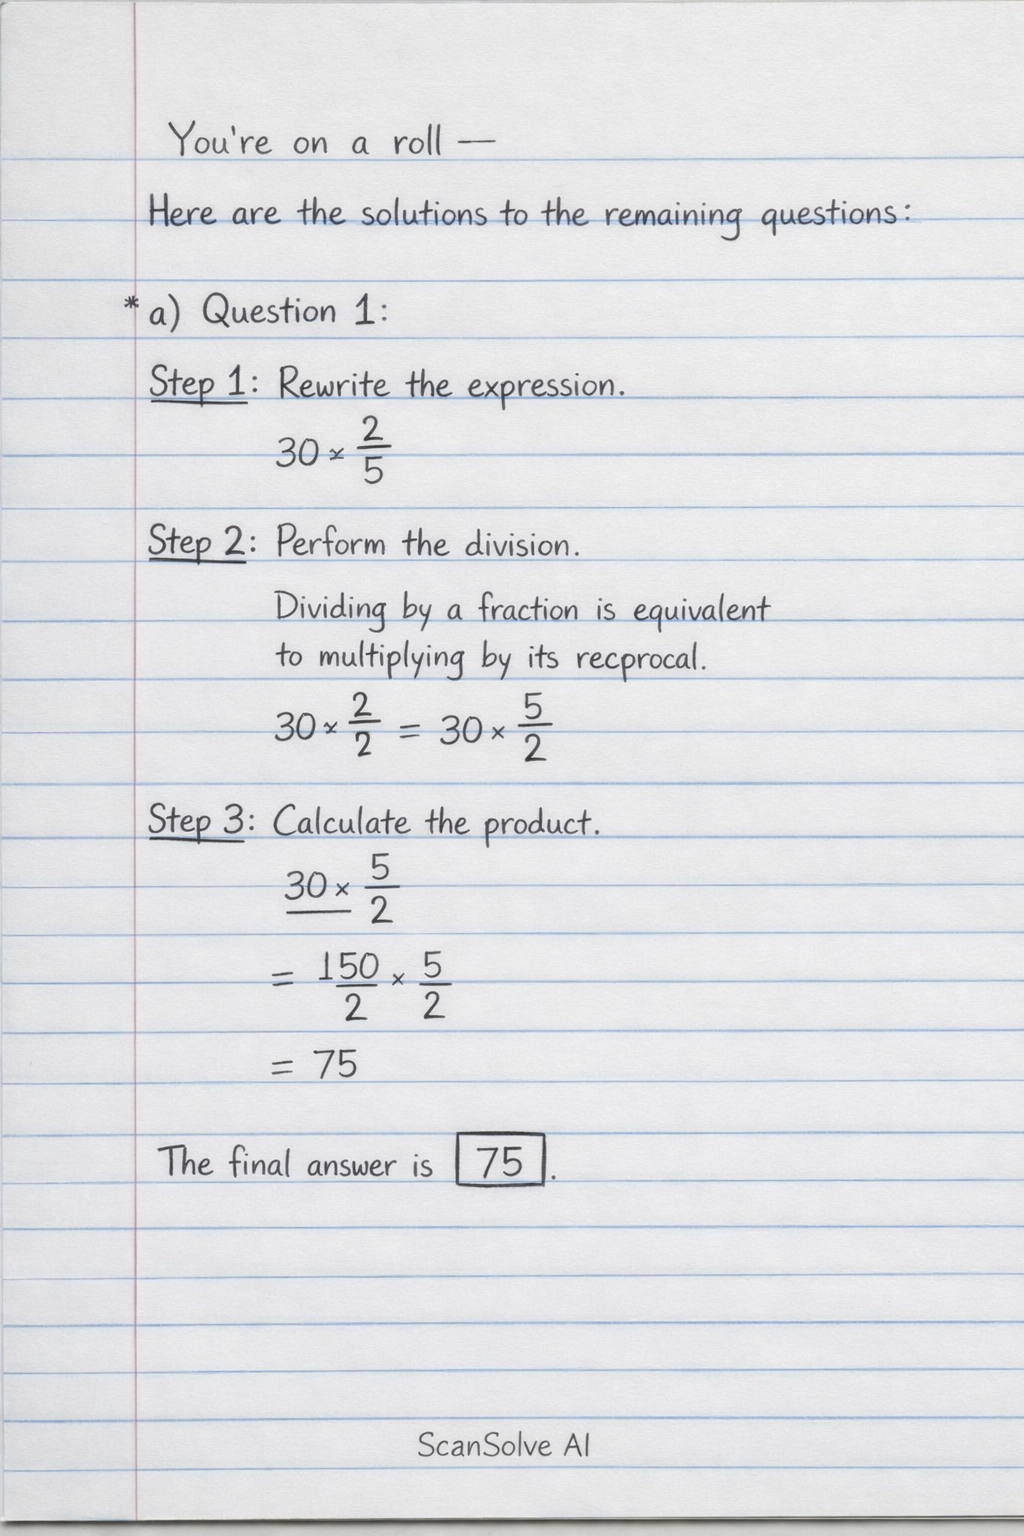 You're on a roll —
Here are the solutions to the remaining questions:
* a) Question 1:
Step 1: Rewrite the expression.
30 × 2/5
Step 2: Perform the division.
Dividing by a fraction is equivalent
to multiplying by its recprocal.
30 × 2/2 = 30 × 5/2
Step 3: Calculate the product.
30 × 5/2
= 150/2 × 5/2
= 75
The final answer is 75.
ScanSolve AI